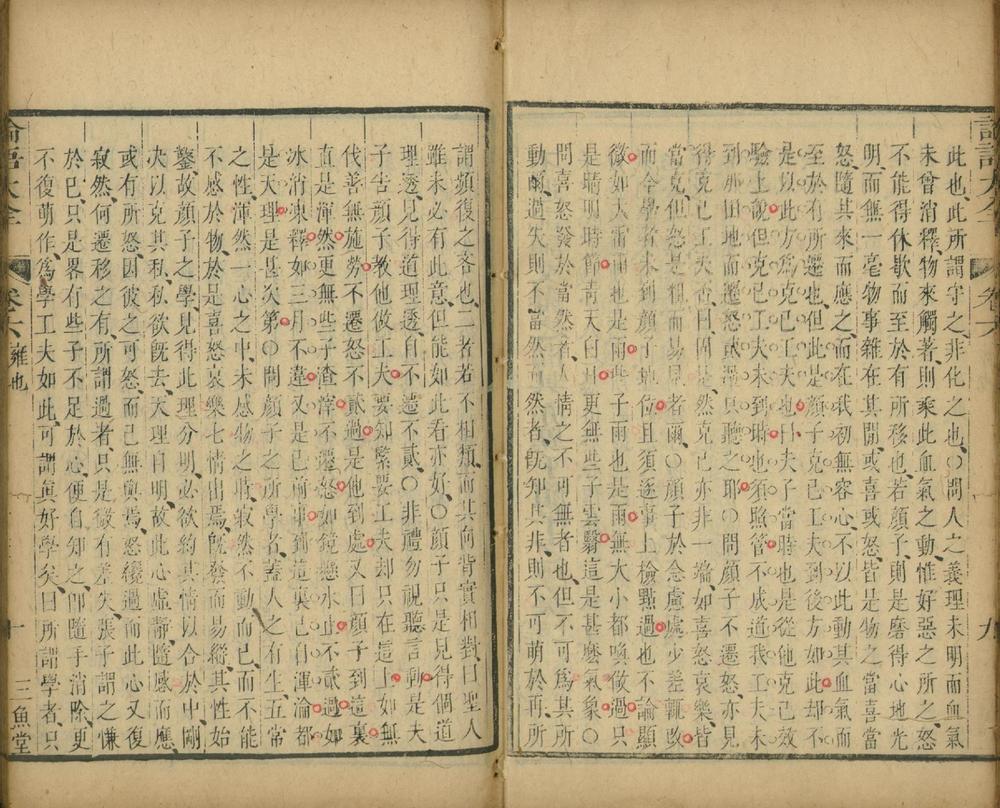 此也此所謂守之非化之也○問人之義理未明而血氣
未曾消釋物來觸著則乘此血氣之動惟好惡之所之怒
不能得休歇而至於有所移也若顏子則是磨得心地光
明而無一毫物事雜在其間或喜或怒皆是物之當喜當
怒隨其來而應之而在我初無容心不以此動其血氣而
至於有所遷也但此是顏子克己工夫到後方如此却不
是以此方為克己工夫也曰夫子當時也是從他克己效
驗上說但克己工夫未到時也須照管不成道我工夫未
到那田地而遷怒貳過只聽之耶○問顏子不遷怒亦見
得克己工夫否曰固是然克己亦非一端如喜怒哀樂皆
當克但怒是粗而易見者爾○顏子於念慮處少差輒改
而今學者未到顏子地位且須逐事上檢點過也不論顯
微如大雷雨也是雨些子雨也是雨無大小都喚做過只
是晴明時節青天白日更無些子雲翳這是甚麽氣象○
問喜怒發於當然者人情之不可無者也但不可為其所
動耳過失則不當然而然者既知其非則不可萌於再所
論語大全 卷六 九
謂頻復之吝也二者若不相類而其向背實相對曰聖人
雖未必有此意但能如此看亦好○顏子只是見得個道
理透見得道理透自不遷不貳○非禮勿視聽言動是夫
子告顏子教他做工夫要知緊要工夫却只在這上如無
伐善無施勞不遷怒不貳過是他到處又曰顏子到這裏
直是渾然更無些子渣滓不遷怒如鏡懸水止不貳過如
冰消凍釋如三月不違又是已前事到這裏已自渾淪都
是天理是甚次第○問顏子之所學者蓋人之有生五常
之性渾然一心之中未感物之時寂然不動而已而不能
不感於物於是喜怒哀樂七情出焉既發而易縱其性始
鑿故顏子之學見得此理分明必欲約其情以合於中剛
決以克其私私欲既去天理自明故此心虛靜隨感而應
或有所怒因彼之可怒而己無與焉怒纔過而此心又復
寂然何遷移之有所謂過者只是微有差失張子謂之慊
於己只是畧有些子不足於心便自知之即隨手消除更
不復萌作為學工夫如此可謂眞好學矣曰所謂學者只
論語大全 卷六 雍也 十 三魚堂